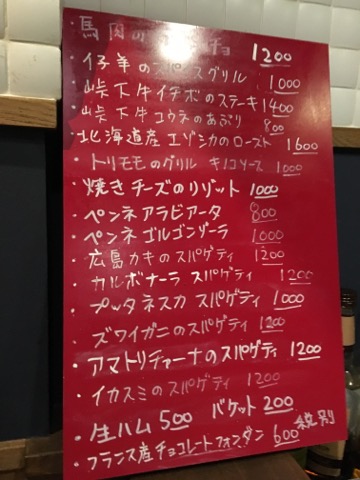 馬肉の チョ 1200
・仔羊の スグリル 1000
・峠下牛イチボのステーキ 1400
・峠下牛コウネのあぶり 800
・北海道産エゾシカのロースト 1600
・トリモモのグリル キノコソース 1000
・焼きチーズのリゾット 1000
・ペンネアラビアータ 800
・ペンネゴルゴンゾーラ 1000
・広島カキのスパゲティ 1200
・カルボナーラ スパゲティ 1200
・プッタネスカ スパゲティ 1000
・ズワイガニのスパゲティ 1200
・アマトリチャーナのスパゲティ 1200
・イカスミのスパゲティ 1200
・生ハム 500 バケット 200
・フランス産チョコレートフォンダン 600 税別